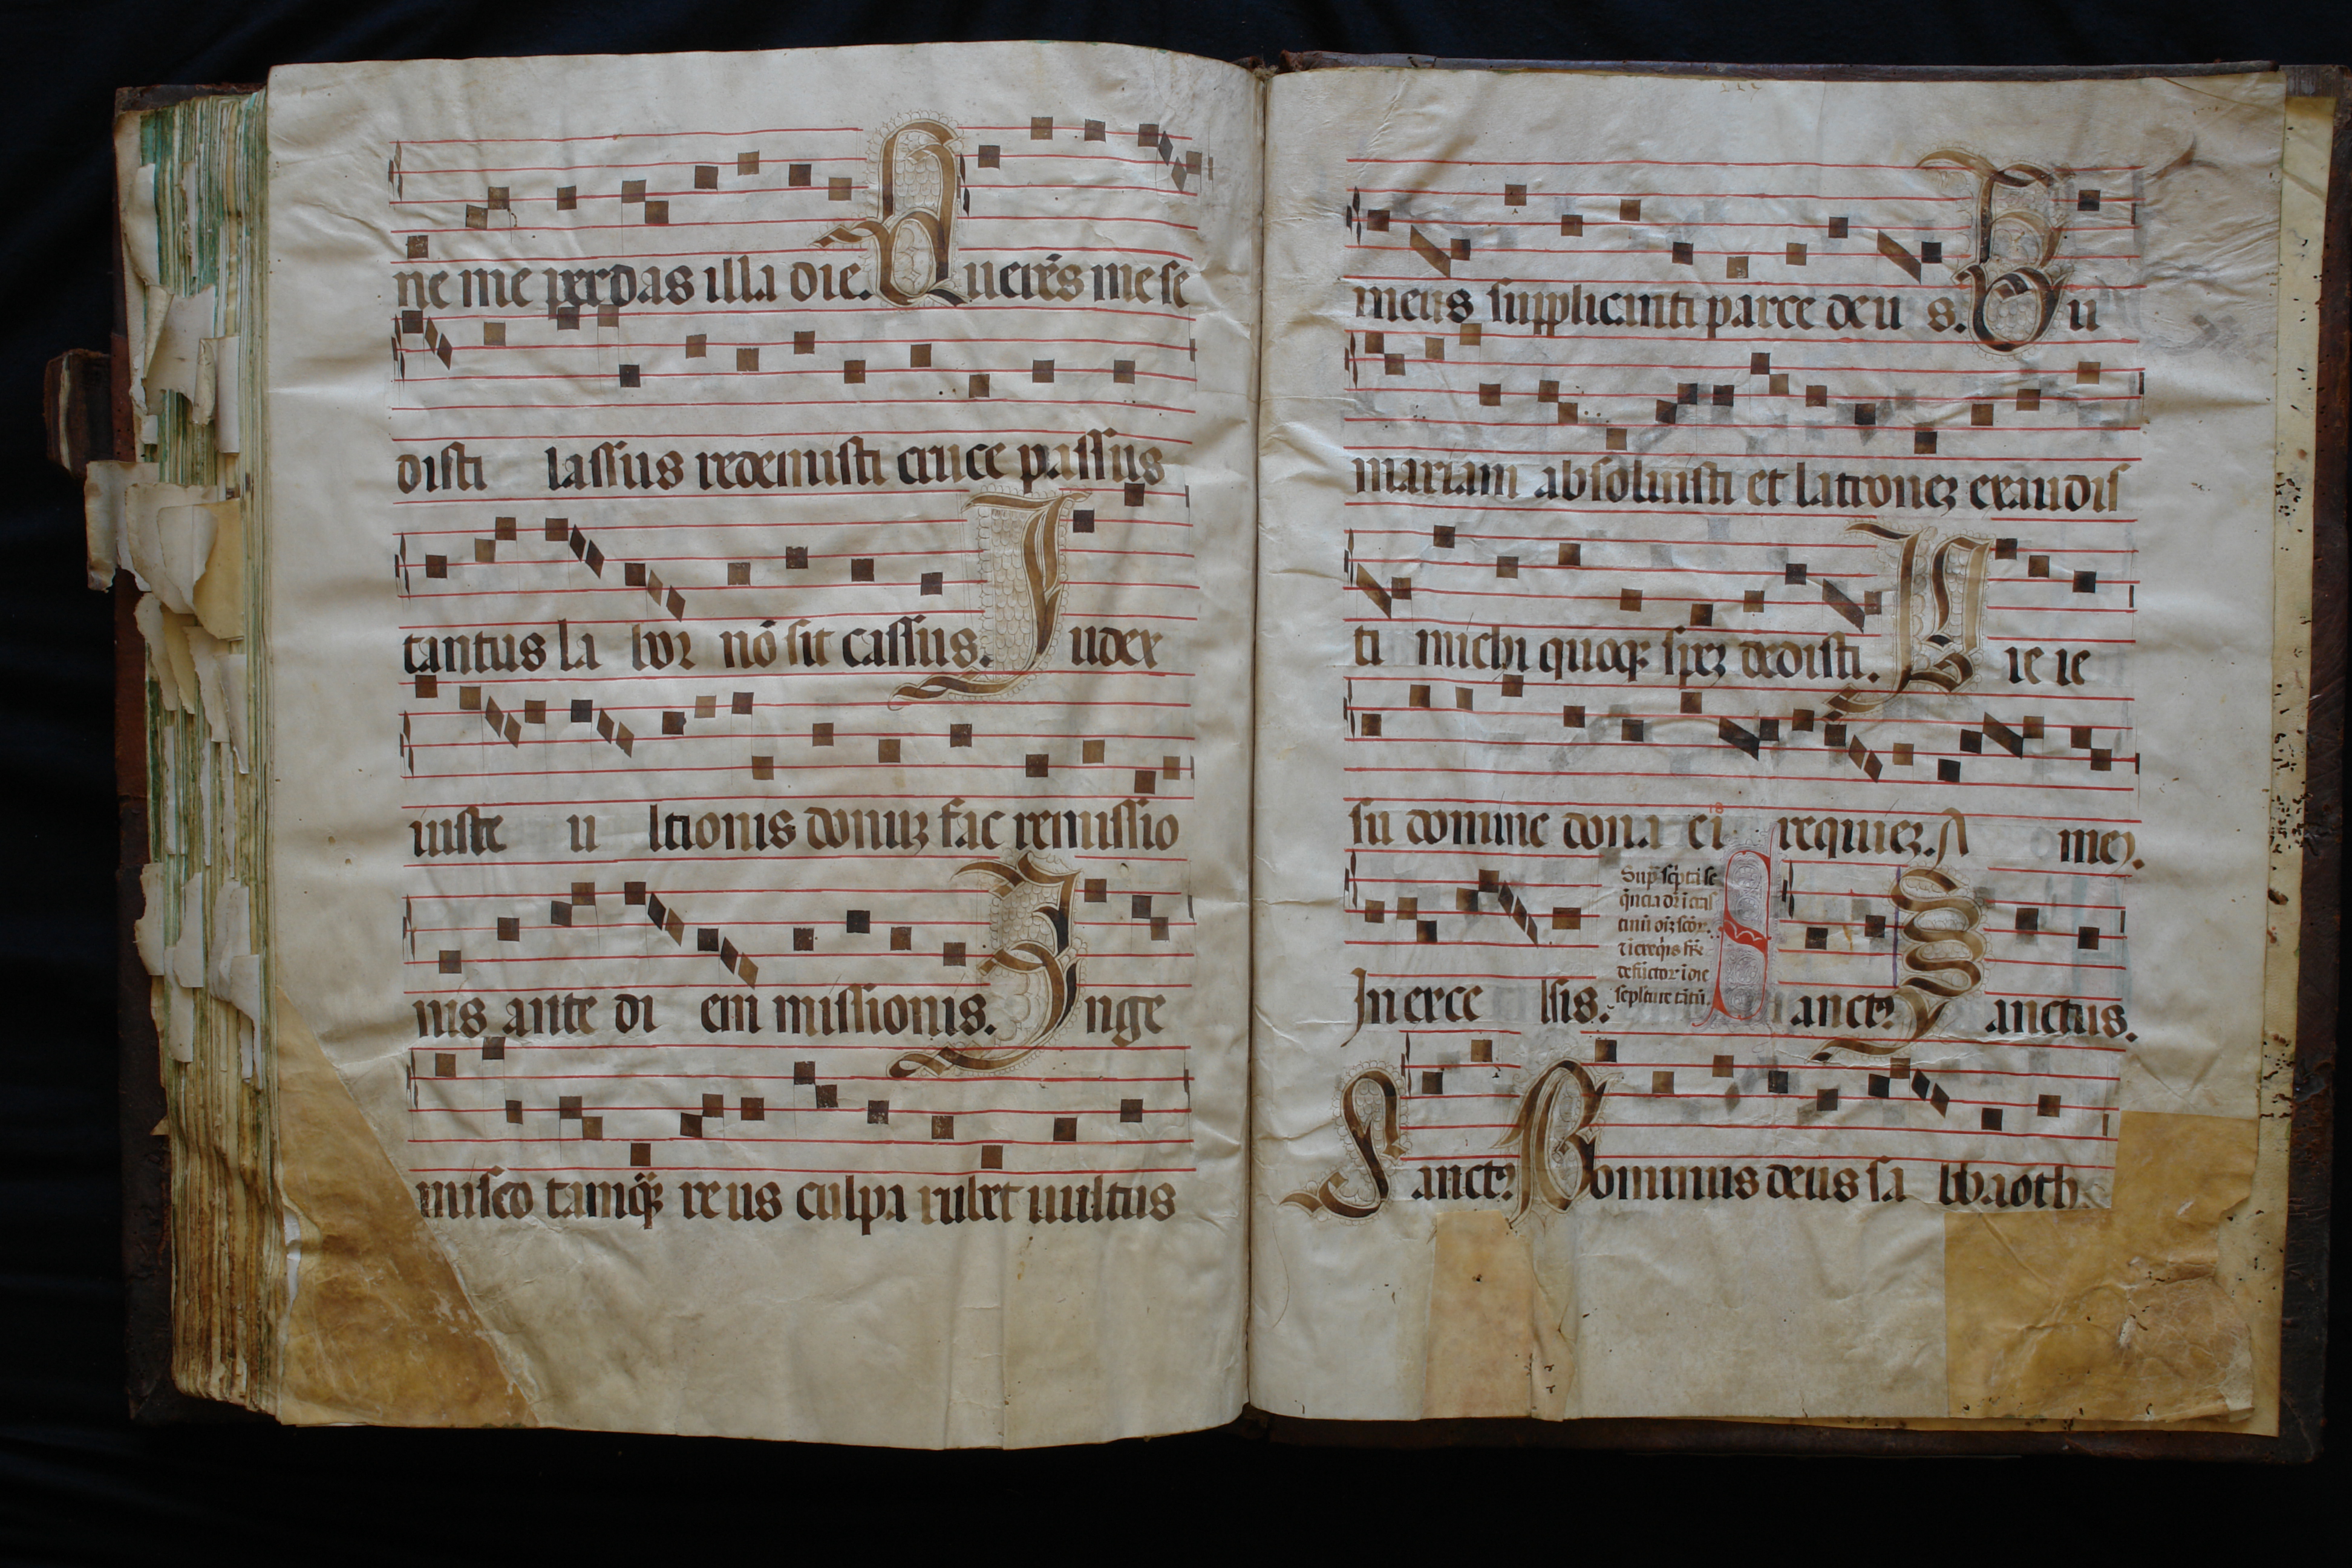 ne me perdas illa die. Querēs me se
disti lassus redemisti cruce passus
tantus la bor nō sit cassus. Judex
iuste u ltionis donuꝫ fac remissio
nis ante di em missionis. Inge
misco tamq̃ꝫ reus culpa rubet uultus
meus supplicanti parce deu s. Qu
mariam absoluisti et latroneꝫ exaudis
ti michi quoqꝫ speꝫ dedisti. Pie ie
su domine dona ei requieꝫ. A meꝫ.
In exce lsis. Sanctꝰ Sanctus.
Sanctꝰ Dominus deus sa bbaoth